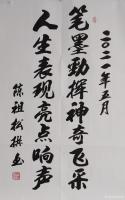 二〇二一年五月
笔墨劲挥神奇飞采
人生表现亮点响声
陈祖松撰书